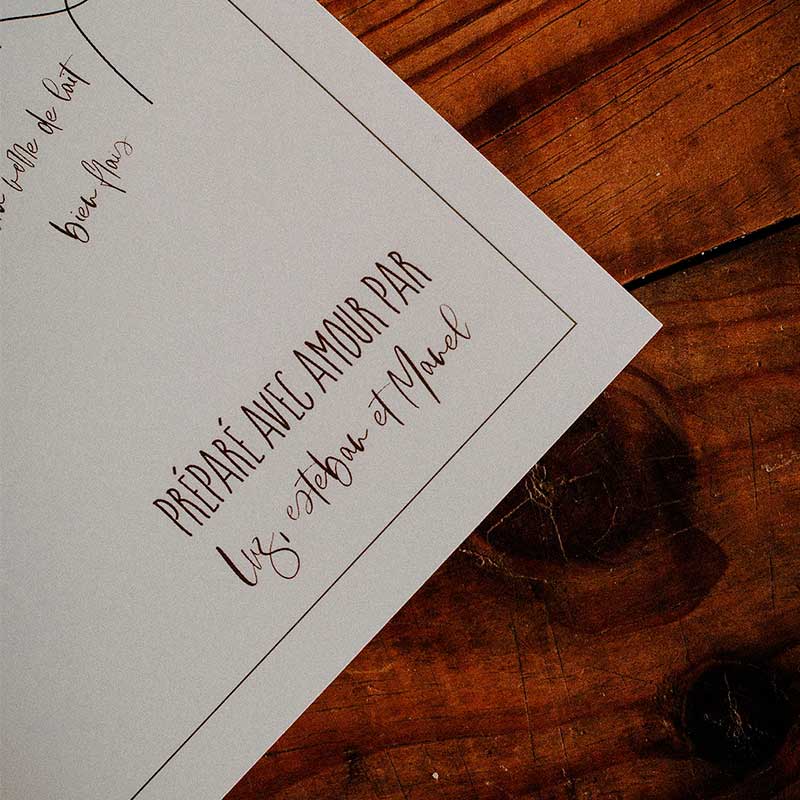 verre de lait
bien frais
PRÉPARÉ AVEC AMOUR PAR
Luz, esteban et Manel